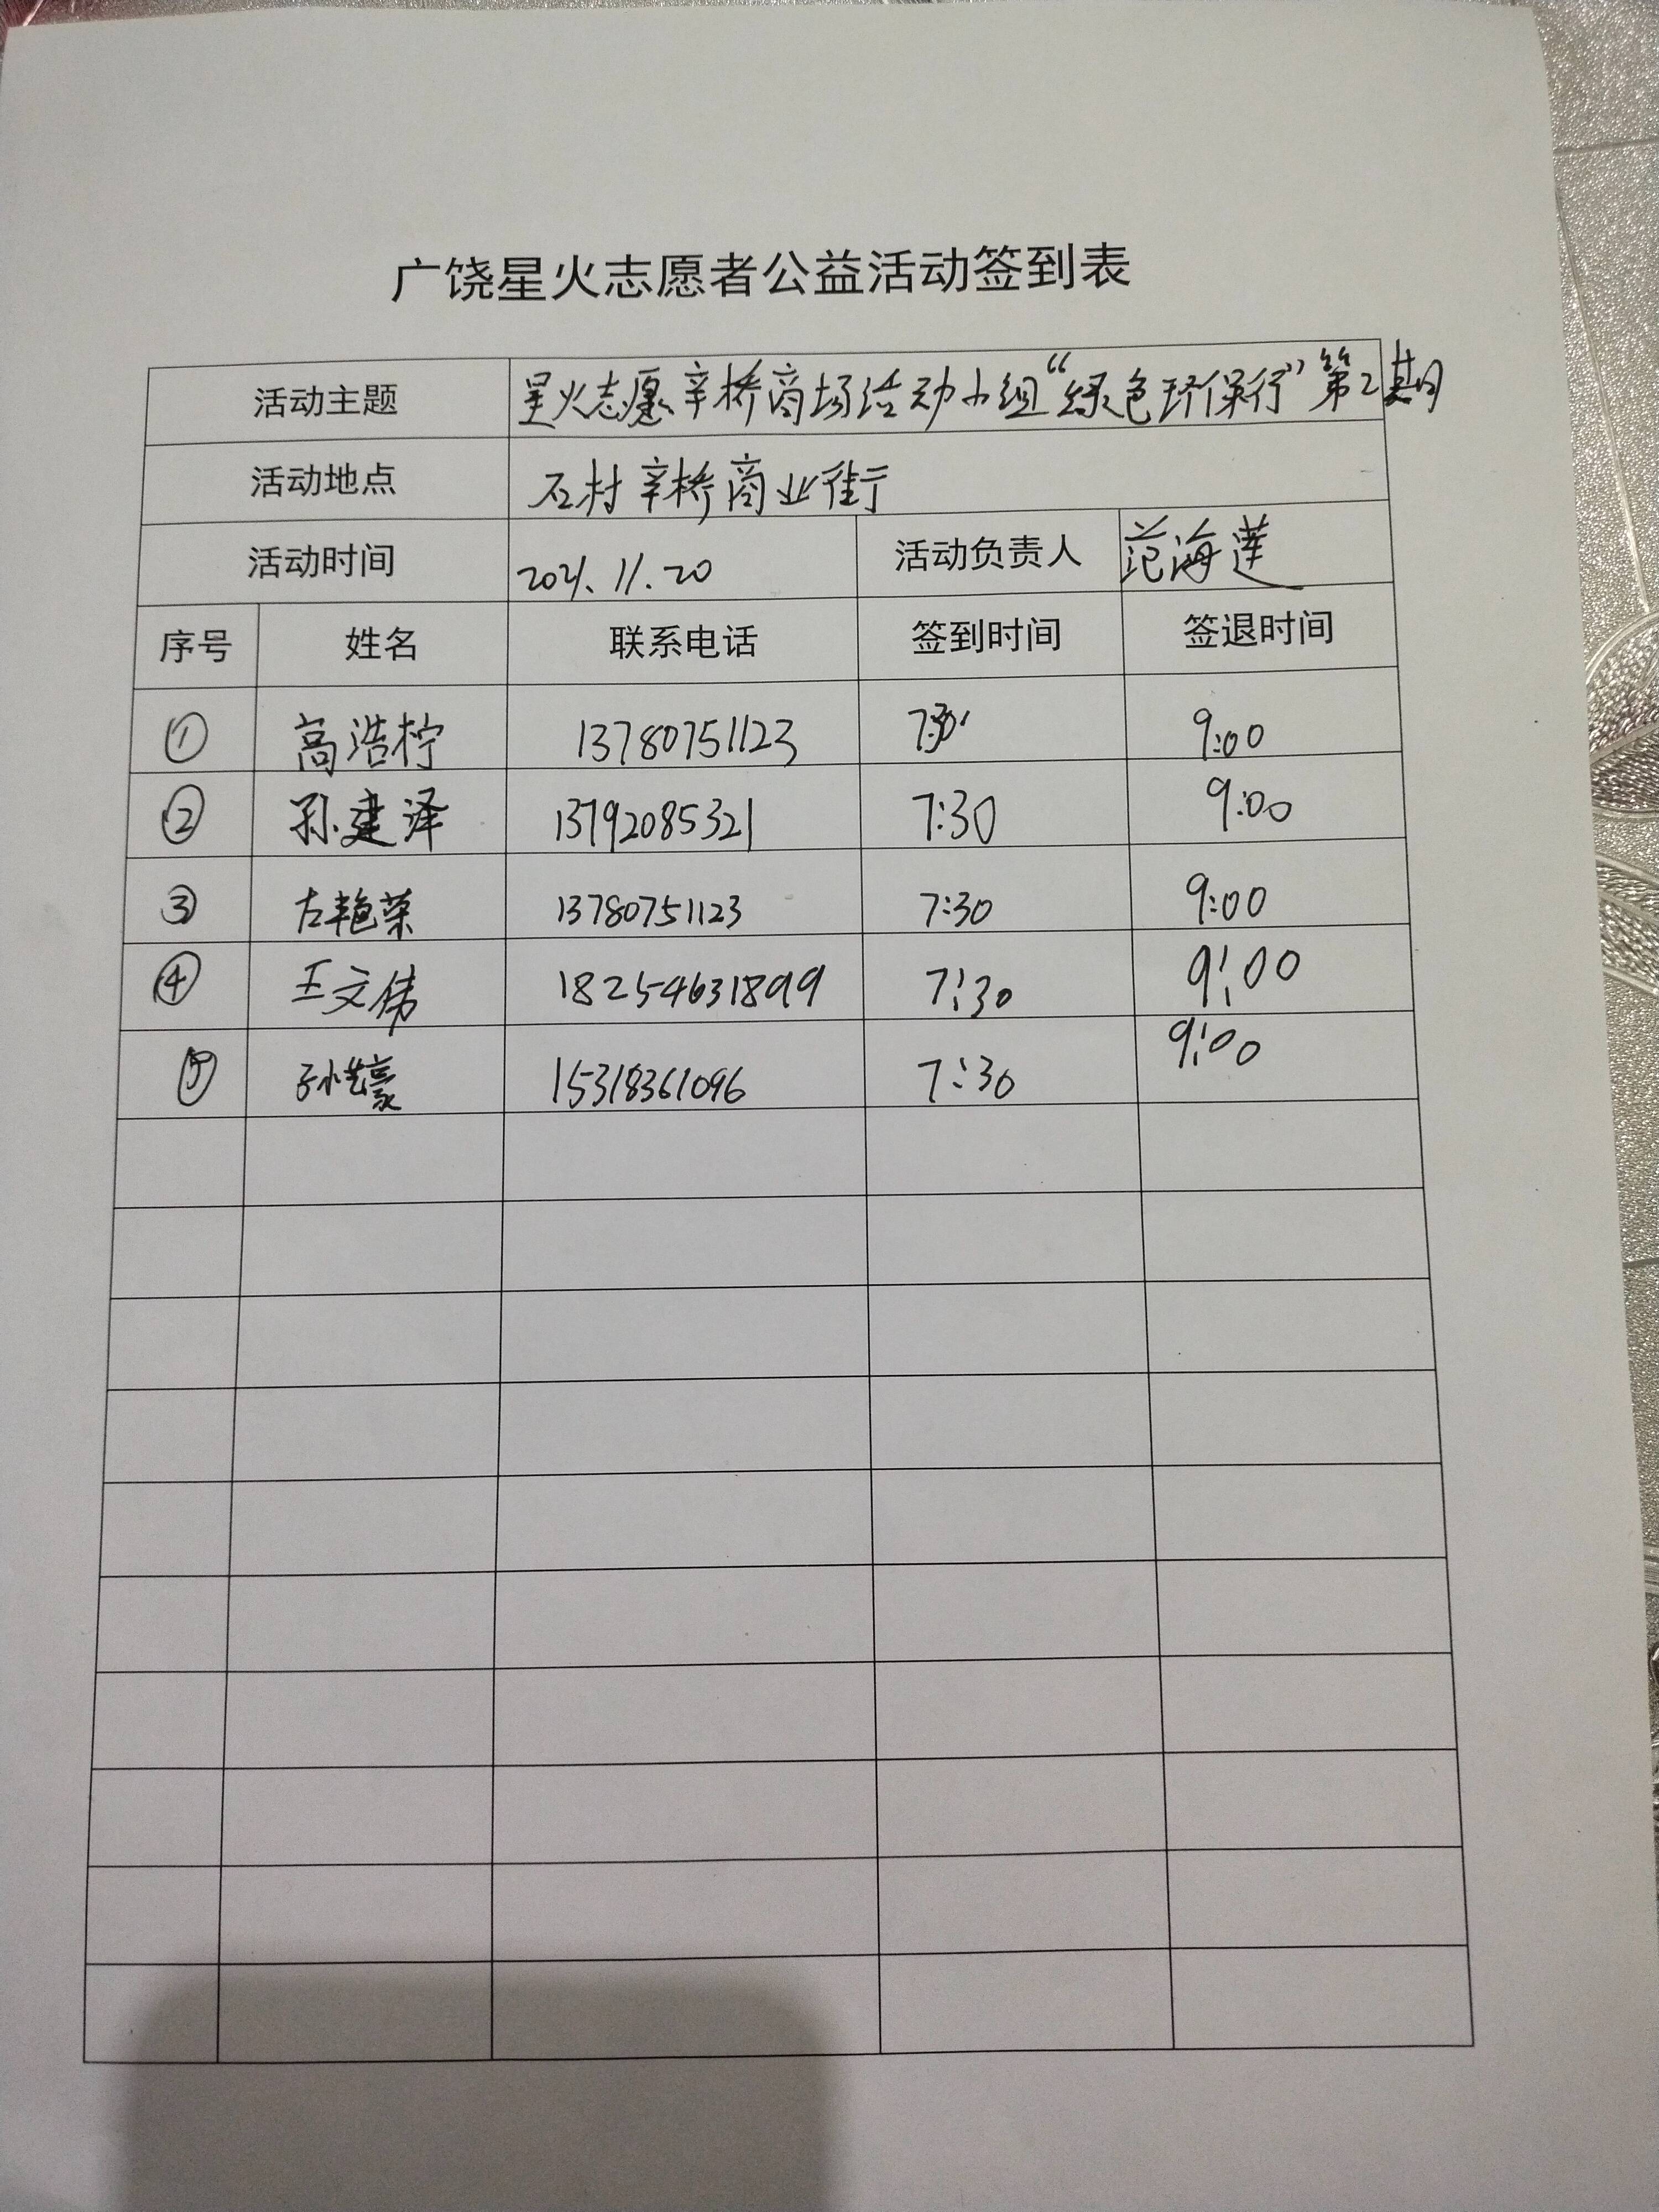 广饶星火志愿者公益活动签到表
活动主题 星火志愿辛桥商场活动小组“绿色环保行”第2期
活动地点 石村辛桥商业街
活动时间 2021.11.20 活动负责人 范海莲
序号 姓名 联系电话 签到时间 签退时间
① 高浩柠 13780751123 7:30 9:00
② 孙建泽 13792085321 7:30 9:00
③ 古艳荣 13780751123 7:30 9:00
④ 王文伟 18254631899 7:30 9:00
⑤ 15318361096 7:30 9:00